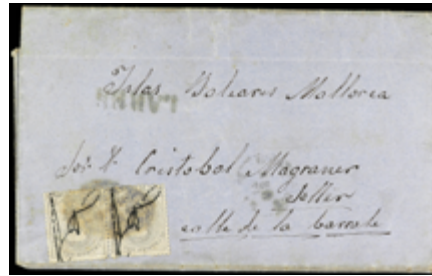 Islas Baleares Mallorca
Sor. D. Cristobal Magraner
Soller
calle de la